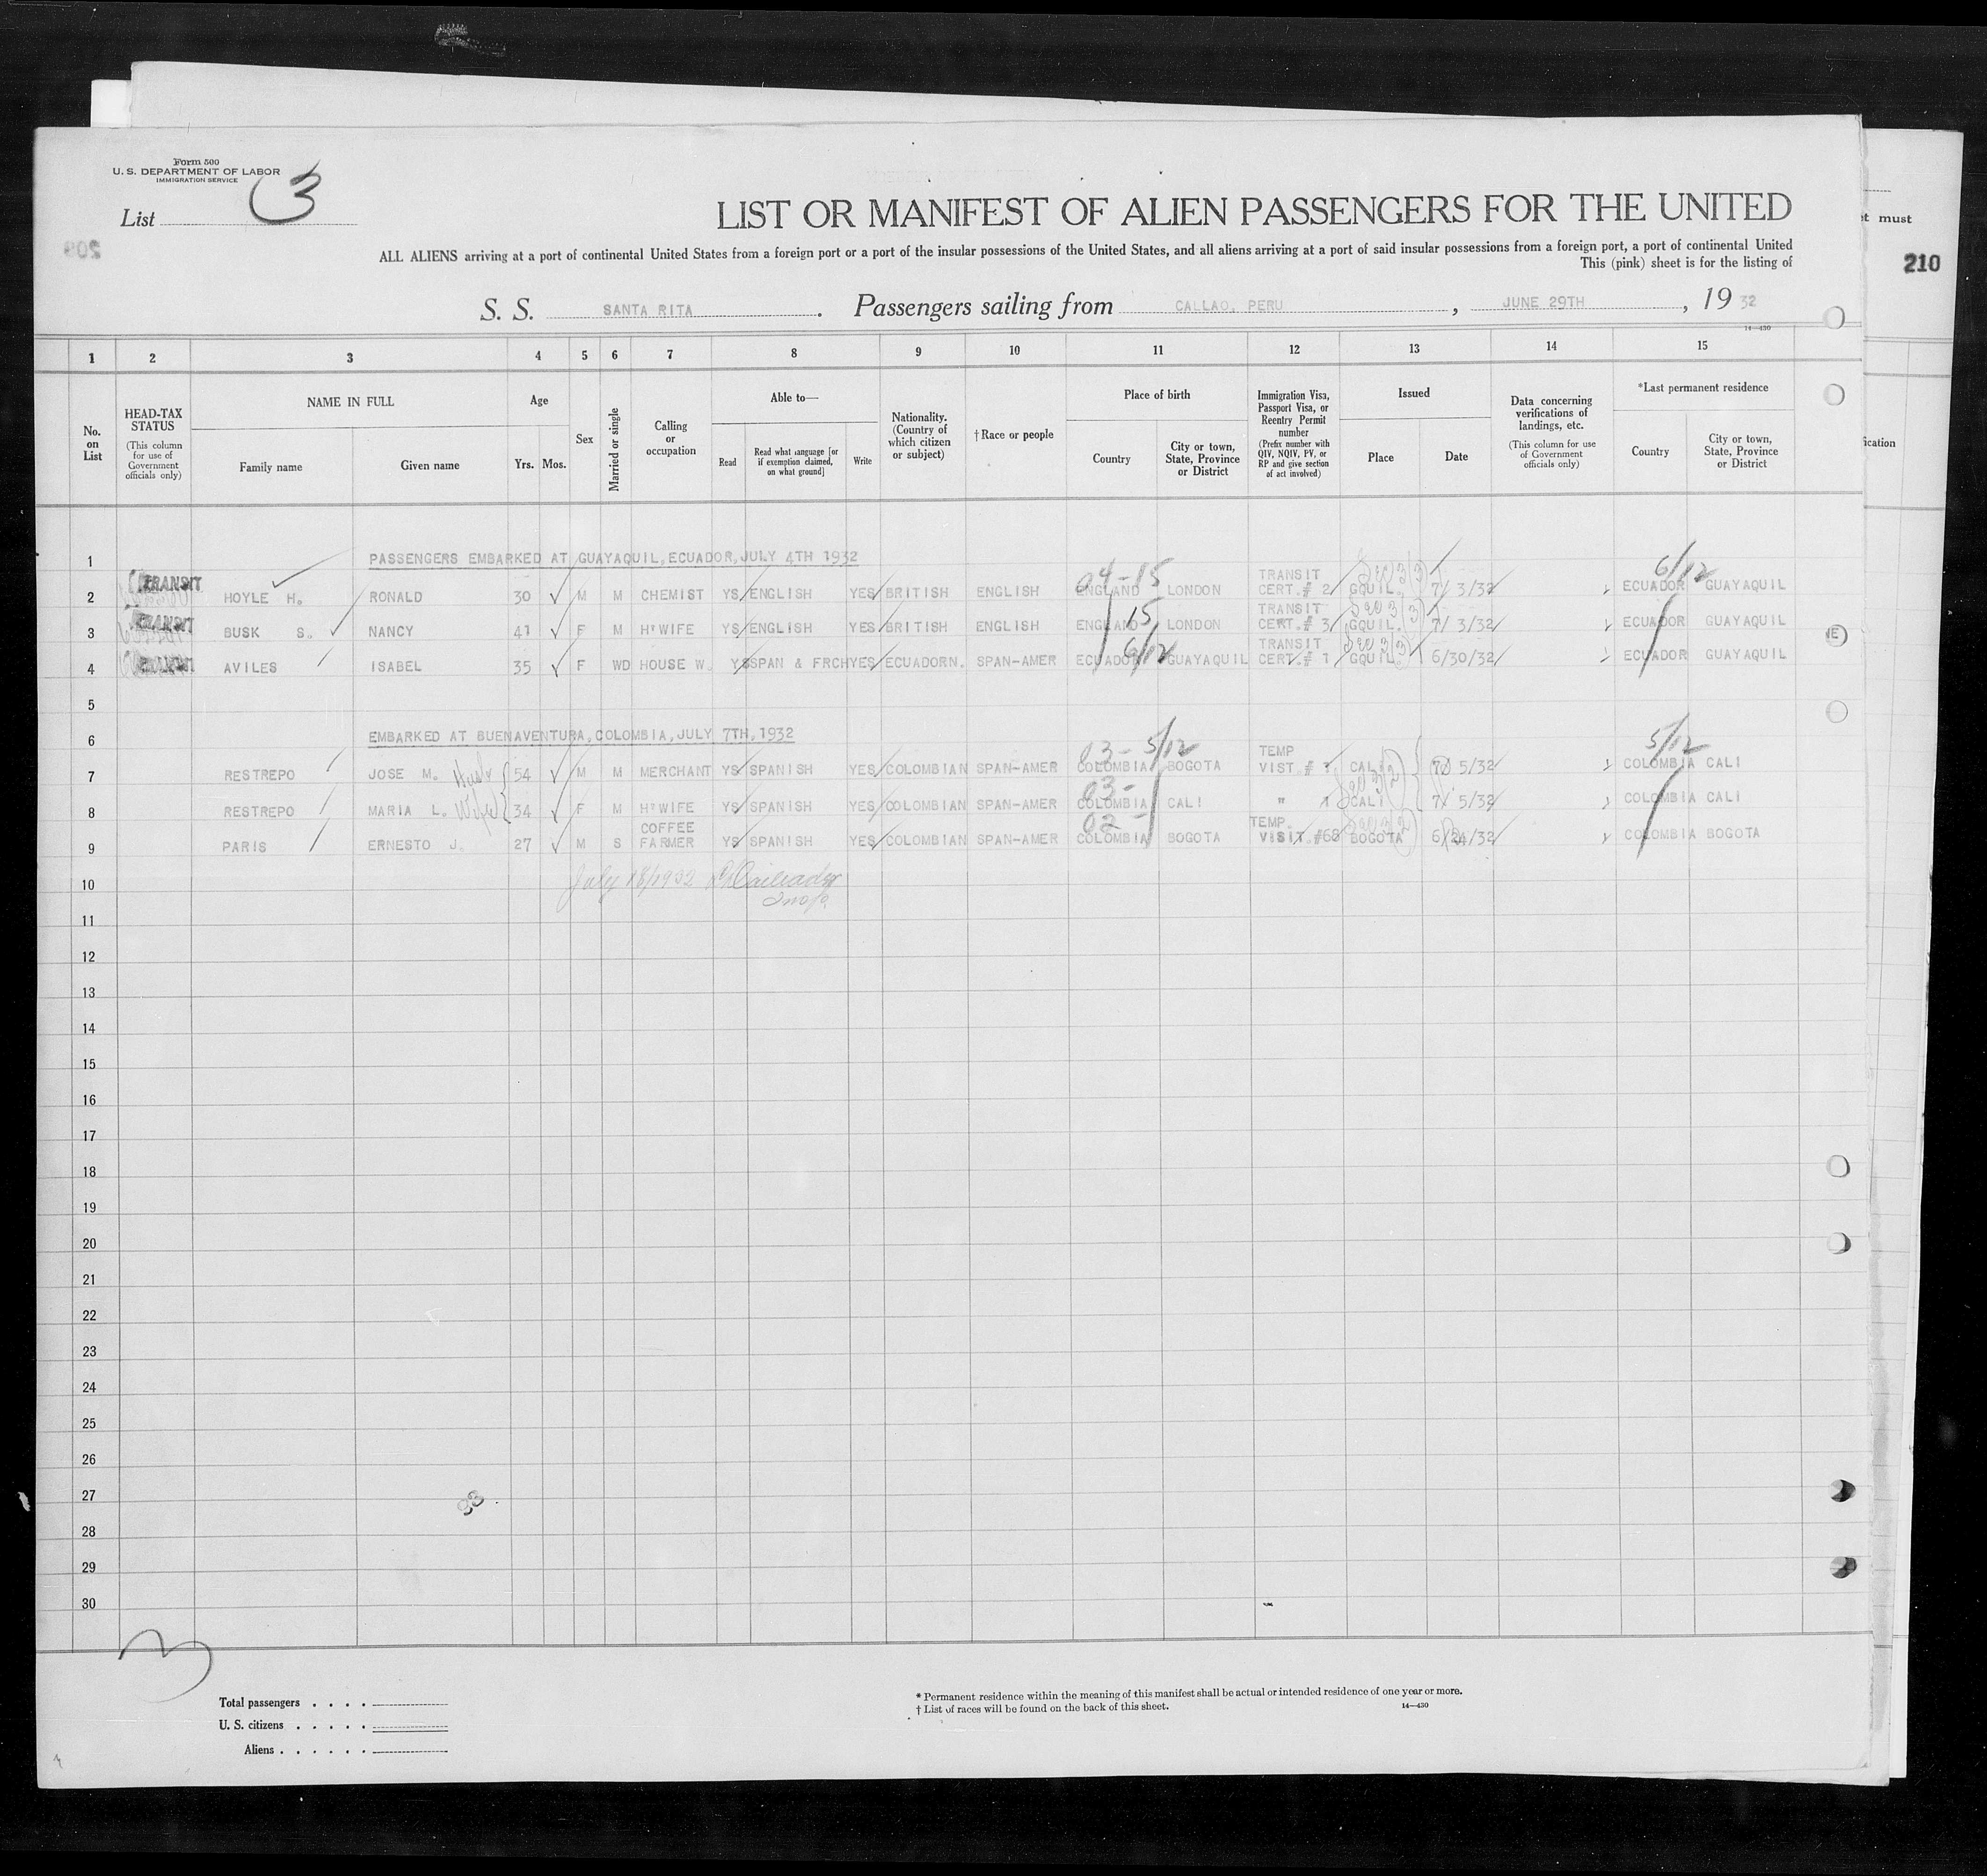 Form 500
U. S. DEPARTMENT OF LABOR
IMMIGRATION SERVICE
List 3
209
LIST OR MANIFEST OF ALIEN PASSENGERS FOR THE UNITED
ALL ALIENS arriving at a port of continental United States from a foreign port or a port of the insular possessions of the United States, and all aliens arriving at a port of said insular possessions from a foreign port, a port of continental United
This (pink) sheet is for the listing of
et must
210
S. S. SANTA RITA. Passengers sailing from CALLAO, PERU, JUNE 29TH, 19 32
14—430
1 2 3 4 5 6 7 8 9 10 11 12 13 14 15
No. on List
HEAD-TAX STATUS
(This column for use of Government officials only)
NAME IN FULL
Family name
Given name
Age
Yrs. Mos.
Sex
Married or single
Calling or occupation
Able to—
Read
Read what language [or if exemption claimed, on what ground]
Write
Nationality. (Country of which citizen or subject)
† Race or people
Place of birth
Country
City or town, State, Province or District
Immigration Visa, Passport Visa, or Reentry Permit number
(Prefix number with QIV, NQIV, PV, or RP and give section of act involved)
Issued
Place
Date
Data concerning verifications of landings, etc.
(This column for use of Government officials only)
*Last permanent residence
Country
City or town, State, Province or District
ication
1 PASSENGERS EMBARKED AT GUAYAQUIL, ECUADOR, JULY 4TH 1932
04-15 6/12
2 TRANSIT HOYLE H. RONALD 30 M M CHEMIST YS ENGLISH YES BRITISH ENGLISH ENGLAND LONDON TRANSIT CERT.# 2 GQUIL. 7/ 3/32 ECUADOR GUAYAQUIL
3 TRANSIT BUSK S. NANCY 41 F M H'WIFE YS ENGLISH YES BRITISH ENGLISH ENGLAND 15 LONDON TRANSIT CERT.# 3 GQUIL. 7/ 3/32 ECUADOR GUAYAQUIL
4 AVILES ISABEL 35 F WD HOUSE W. YS SPAN & FRCH YES ECUADORN. SPAN-AMER ECUADOR 6/12 GUAYAQUIL TRANSIT CERT.# 1 GQUIL. 6/30/32 ECUADOR GUAYAQUIL
5
6 EMBARKED AT BUENAVENTURA, COLOMBIA, JULY 7TH, 1932
03- 5/12 5/12
7 RESTREPO JOSE M. Husb 54 M M MERCHANT YS SPANISH YES COLOMBIAN SPAN-AMER COLOMBIA BOGOTA TEMP VIST. # CALI 7/ 5/32 COLOMBIA CALI
03-
8 RESTREPO MARIA L. Wife 34 F M H'WIFE YS SPANISH YES COLOMBIAN SPAN-AMER COLOMBIA CALI " CALI 7/ 5/32 COLOMBIA CALI
02-
9 PARIS ERNESTO J. 27 M S COFFEE FARMER YS SPANISH YES COLOMBIAN SPAN-AMER COLOMBIA BOGOTA TEMP. VISIT.#68 BOGOTA 6/24/32 COLOMBIA BOGOTA
10 July 18/1932 Insp.
11
12
13
14
15
16
17
18
19
20
21
22
23
24
25
26
27
28
29
30
3
Total passengers
U. S. citizens
Aliens
* Permanent residence within the meaning of this manifest shall be actual or intended residence of one year or more.
† List of races will be found on the back of this sheet.
14—430